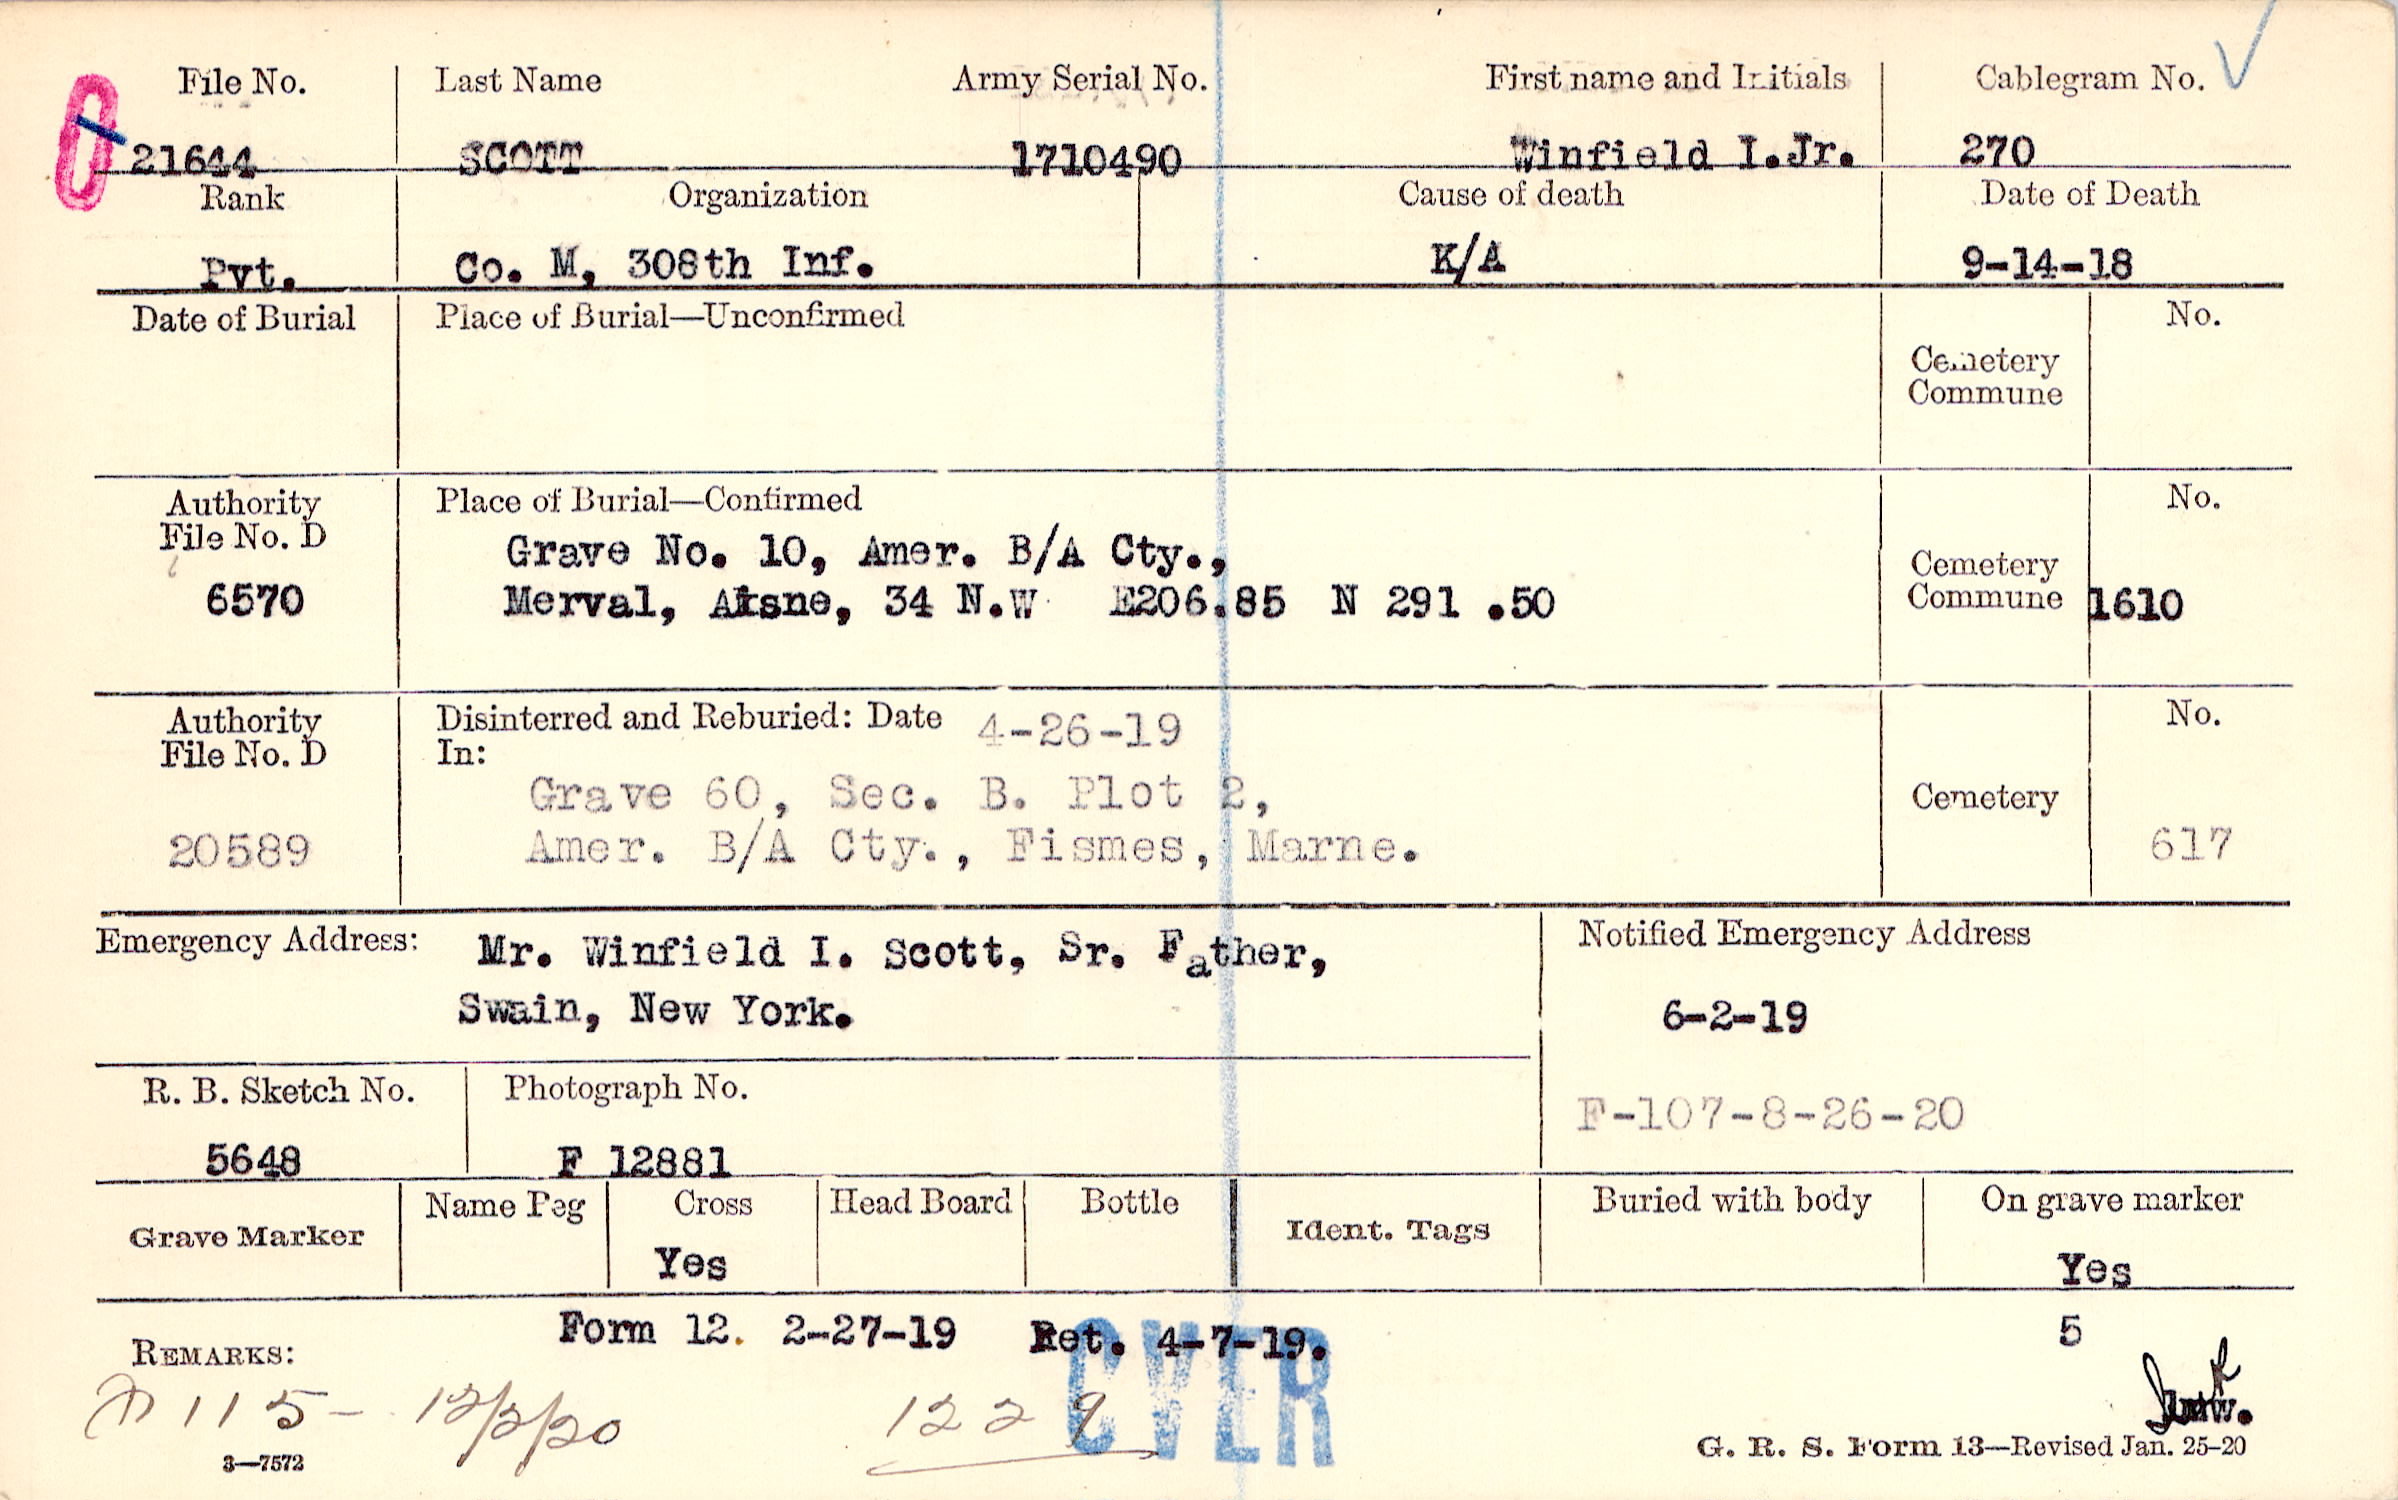 File No. Last Name Army Serial No. First name and Initials Cablegram No.
21644 SCOTT 1710490 Winfield I.Jr. 270
Rank Organization Cause of death Date of Death
Pvt. Co. M, 308th Inf. K/A 9-14-18
Date of Burial Place of Burial—Unconfirmed No.
Cemetery
Commune
Authority Place of Burial—Confirmed No.
File No. D
Grave No. 10, Amer. B/A Cty.,
Cemetery
6570 Merval, Aisne, 34 N.W E206.85 N 291 .50 Commune 1610
Authority Disinterred and Reburied: Date 4-26-19 No.
File No. D In:
Grave 60, Sec. B. Plot 2, Cemetery
20589 Amer. B/A Cty., Fismes, Marne. 617
Emergency Address: Mr. Winfield I. Scott, Sr. Father, Notified Emergency Address
Swain, New York. 6-2-19
R. B. Sketch No. Photograph No. F-107-8-26-20
5648 F 12881
Grave Marker Name Peg Cross Head Board Bottle Ident. Tags Buried with body On grave marker
Yes Yes
Form 12. 2-27-19 Ret. 4-7-19. 5
REMARKS:
115- 12/2/20 1229 OVER
3—7572 G. R. S. Form 13—Revised Jan. 25-20